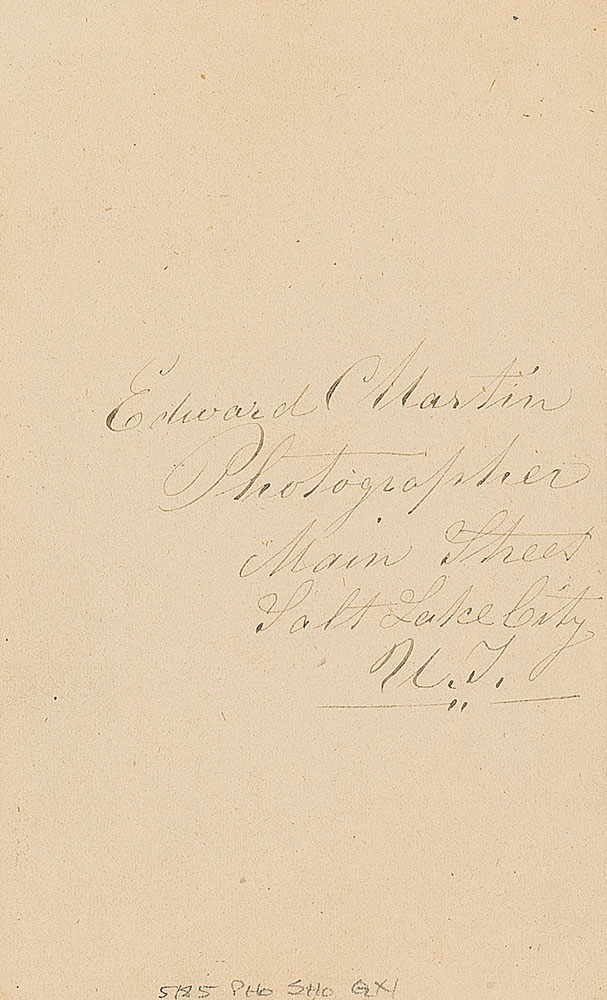 Edward Martin
Photographer
Main Street
Salt Lake City
U.T.
PHO SHO